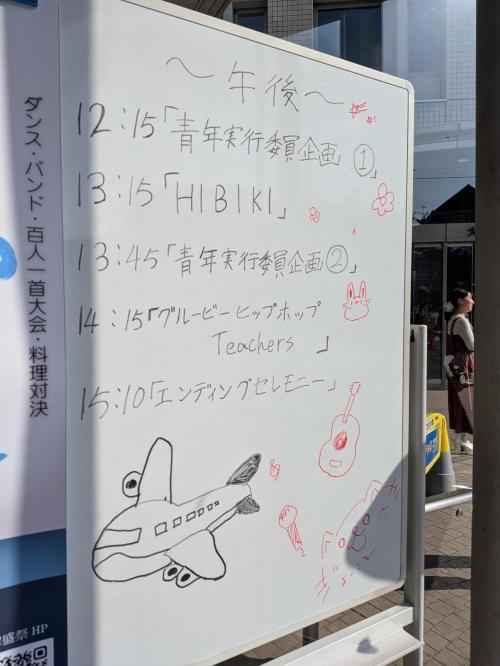 ～午後～
12:15「青年実行委員企画」①
13:15「HIBIKI」
13:45「青年実行委員企画②」
14:15「グルービーヒップホップ
Teachers 」
15:10「エンディングセレモニー」
ダンス・バンド・百人一首大会・料理対決
盛祭 HP